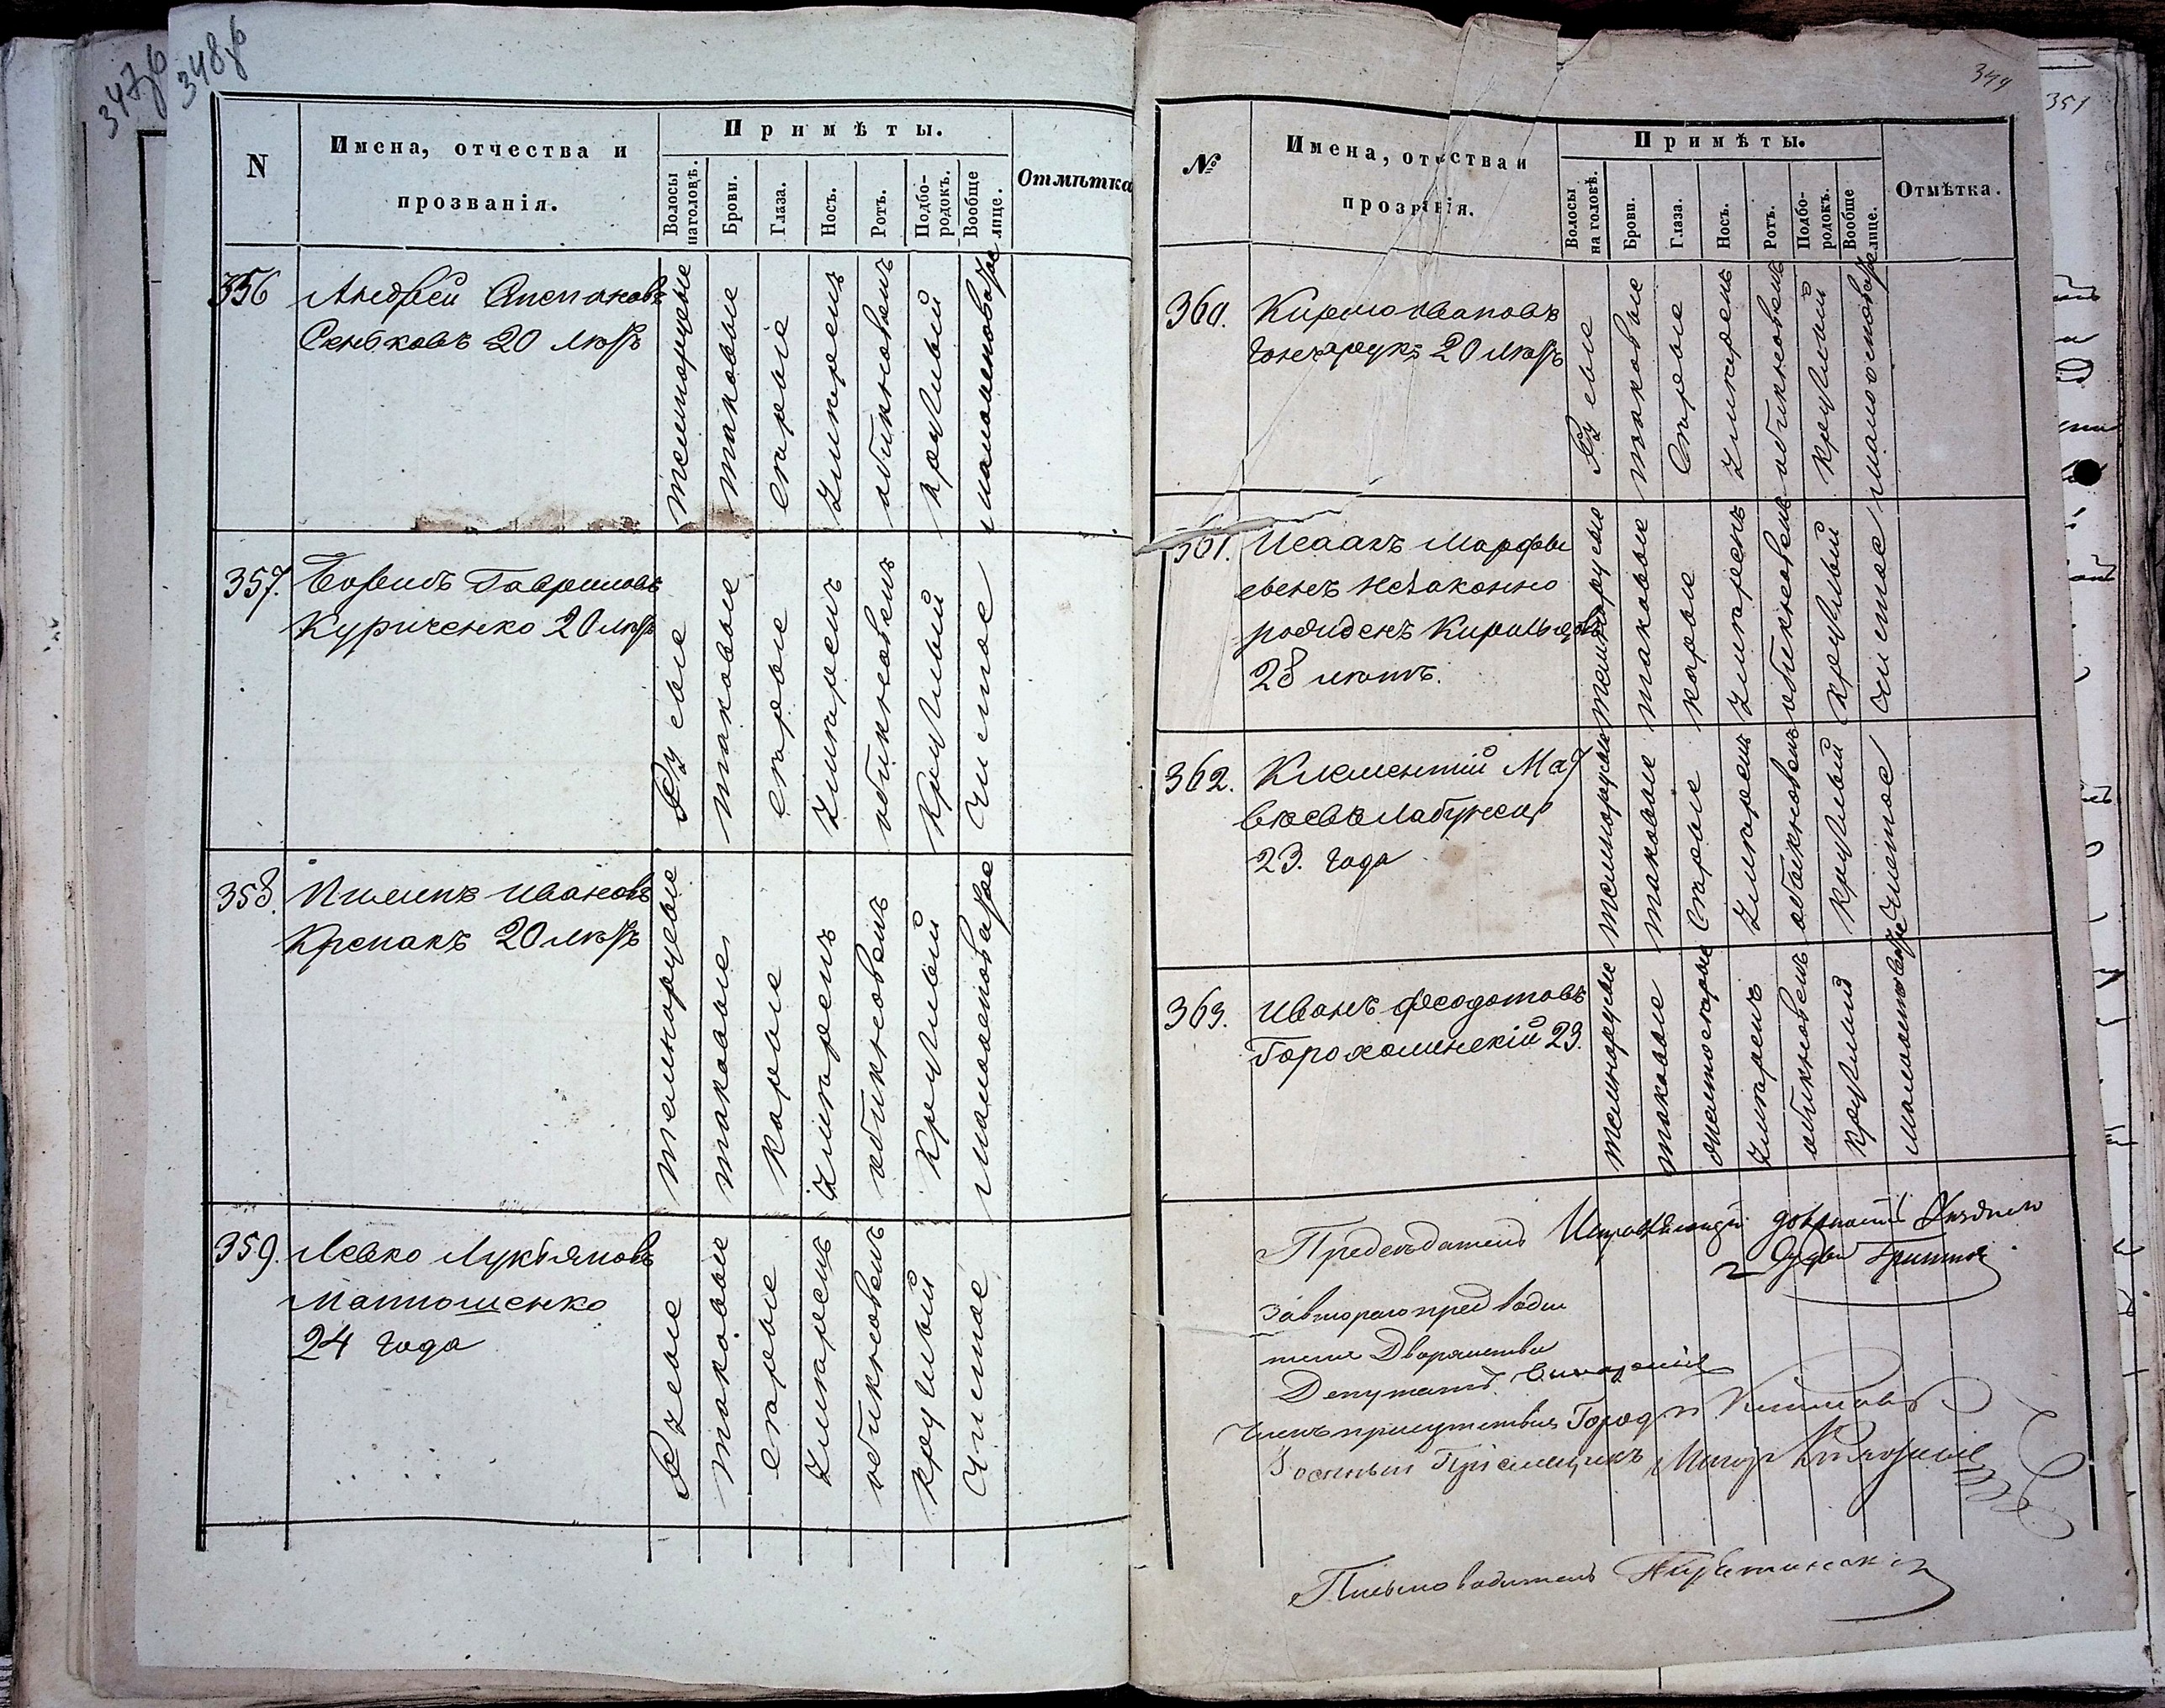 347об
348об
N
Имена, отчества и
прозванія.
Примѣты.
Волосы
на головѣ.
Брови.
Глаза.
Носъ.
Ротъ.
Подбо-
родокъ.
Вообще
лице.
Отмѣтка
356
Андрей Степановъ
Сеньковъ 20 лѣтъ
темнорусые
таковые
серые
умѣренъ
обикновенъ
круглый
малоосповатое
357.
Гавриловъ
Куриченко 20 лѣтъ
Русые
таковые
серые
умѣренъ
обикновенъ
круглый
чистое
358.
Пилипъ Ивановъ
Крепакъ 20 лѣтъ
темнорусые
таковые
карые
умѣренъ
обикновенъ
круглый
малоосповатое
359.
Левко Лукьяновъ
Матюшенко
24 года
Русые
таковые
серые
умѣренъ
обикновенъ
круглый
чистое
349
351
№
Имена, отчества и
прозванія.
Примѣты.
Волосы
на головѣ.
Брови.
Глаза.
Носъ.
Ротъ.
Подбо-
родокъ.
Вообще
лице.
Отмѣтка.
360.
Кирило Ивановъ
Гончарукъ 20 лѣтъ
Русые
таковые
Серые
умѣренъ
обикновенъ
круглый
малоосповатое
361.
Исаакъ Марфы
евенъ незаконно
рожденъ
28 лѣтъ.
темнорусые
таковые
карые
умѣренъ
обикновенъ
круглый
чистое
362.
Клементій Мат
вѣевъ
23. года
темнорусые
таковые
Серые
умѣренъ
обикновенъ
круглый
чистое
363.
Иванъ Феодотовъ
Горохолинскій 23.
темнорусые
таковые
умѣренъ
обикновенъ
круглый
малоосповатое
Председатель Исправляющій должность Уѣзднаго
Судьи
За втораго предводи
теля Дворянства
Депутатъ
Членъ присутствія Город
Военный Пріемщикъ Маіоръ
Письмоводитель